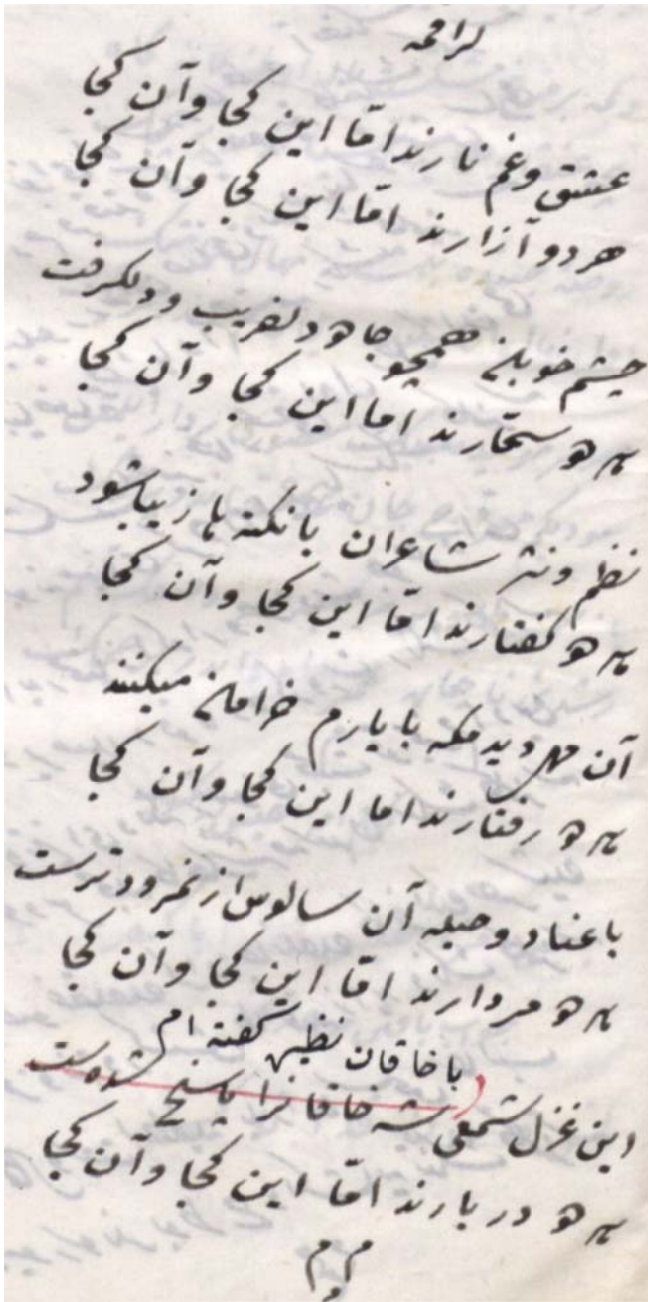 لراقمه
عشق و غم نارند امّا این کجا و آن کجا
هر دو آزارند امّا این کجا و آن کجا
چشم خوبان همچو جاهد دلفریب و دلگرفت
هر دو سحّارند اما این کجا و آن کجا
نظم و نثر شاعران با نکته ها زیبا شود
هر دو گفتارند امّا این کجا و آن کجا
آن مه و دیدمکه با یارم خرامان میکنند
هر دو رفتارند اما این کجا و آن کجا
با عناد و حیله آن سالوس از نمرود ترست
هر دو مردارند امّا این کجا و آن کجا
با خاقان نظیر گفته ام
این غزل شمعی شه خاقانرا پاسخ شدست
هر دو دربارند امّا این کجا و آن کجا
م م